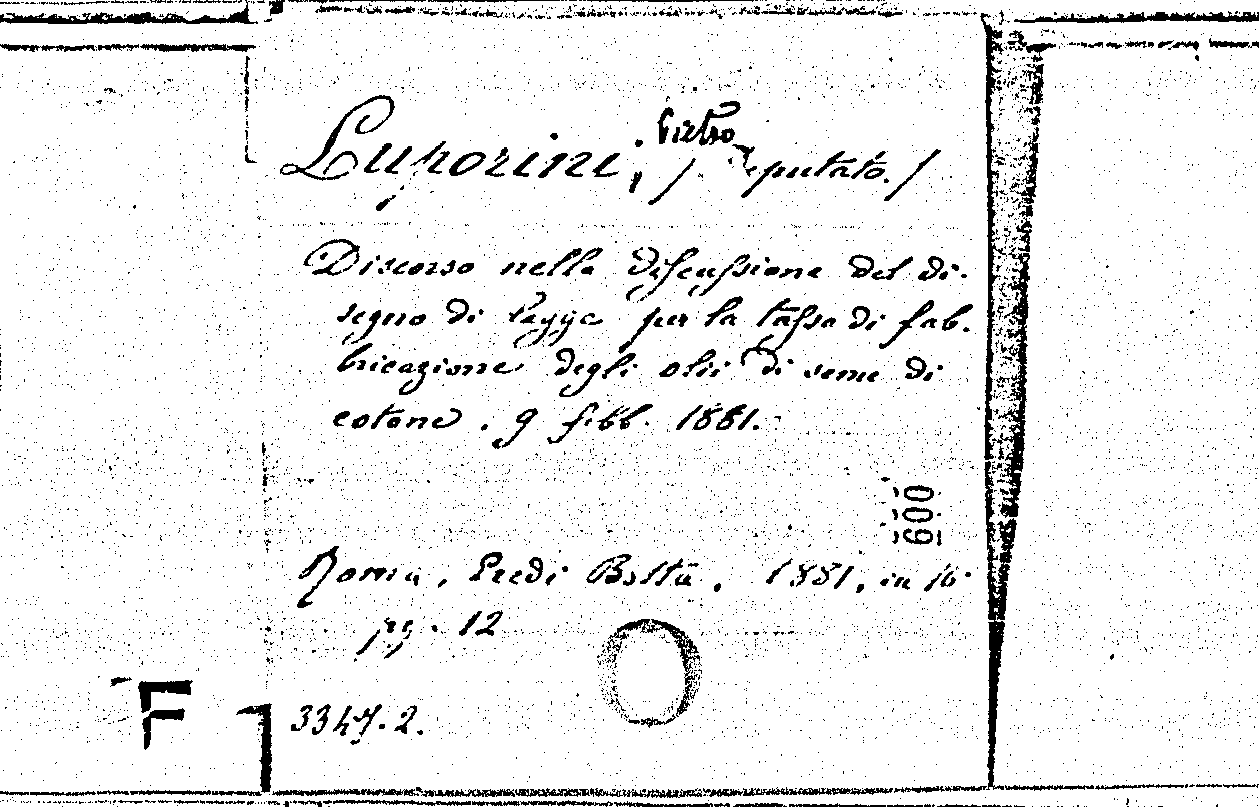 Luporini, Pietro
/ Deputato. /
Discorso nella discussione del di-
segno di legge per la tassa di fab-
bricazione degli olii di seme di
cotone. 9 febb. 1881.
009
Roma, Eredi Botta, 1881, in 16°
pg. 12
F
3347.2.